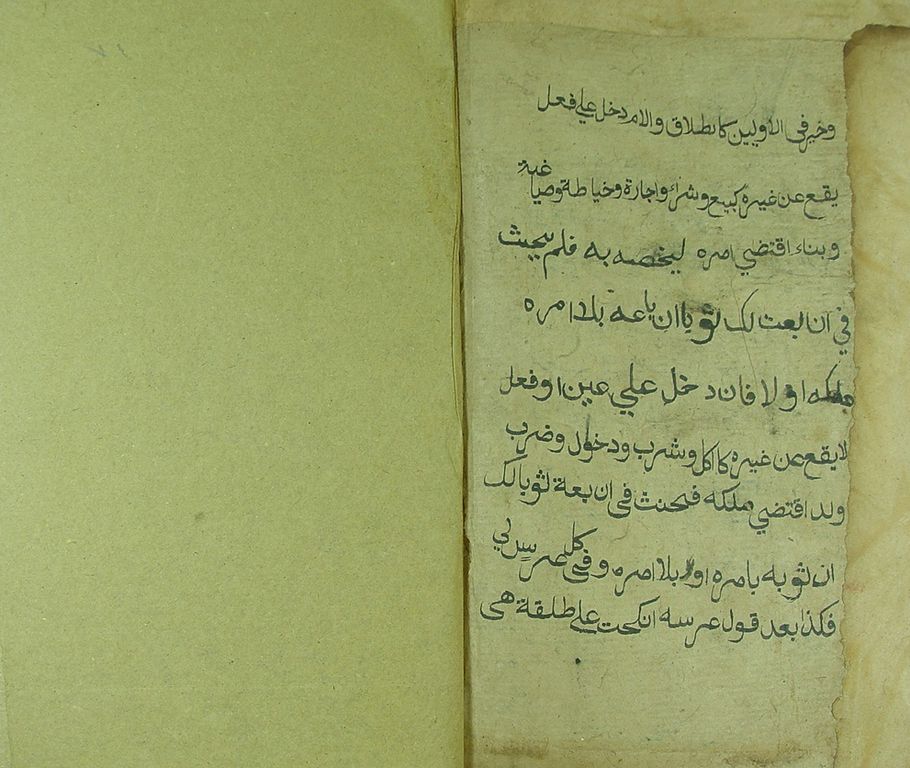 وخير في الاوليين كابطلاق والام دخل علي فعل
يقع عن غيره كبيع وشراء واجارة وخياطة وصياغة
وبناء اقتضي امره ليخصه به فلم يحيث
في ان بعت لك ثوبا ان باعه بلا امره
ملكه او لا فان دخل علي عين او فعل
لا يقع عن غيره كاكل وشرب ودخول وضرب
ولد اقتضي ملكه فحنث في ان بعة ثوبا لك
ان ثوبه بامره او بلا امره وفي كل عرس لي
فكذا بعد قول عرسه انكحت علي طلقة هي